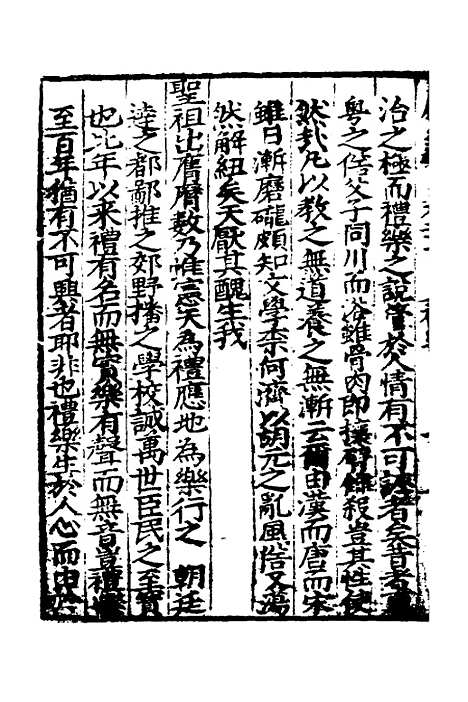 治之極而禮樂之說管於人情有不可誣者矣昔者
粵之俗父子同川而浴雖骨肉即攘臂鋒殺豈其性使
然哉凡以教之無道養之無漸云爾由漢而唐而宋
雖日漸磨礲頗知文學柰何濟以胡元之亂風俗又蕩
然解紐矣天厭其醜生我
聖祖出膺曆數乃惟憲天為禮應地為樂行之 朝廷
達之都鄙推之郊野播之學校誠萬世臣民之至寶
也比年以来禮有名而無實樂有聲而無音豈禮樂
至百年猶有不可興者耶非也禮樂生於人心而由於